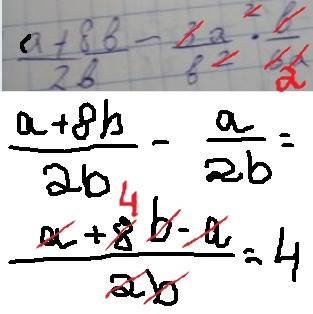 (a+8b)/(2b) - (3a²)/(b²) · b/(6a) 2
(a+8b)/(2b) - a/(2b) =
(a + 8 b - a)/(2b) = 4
4